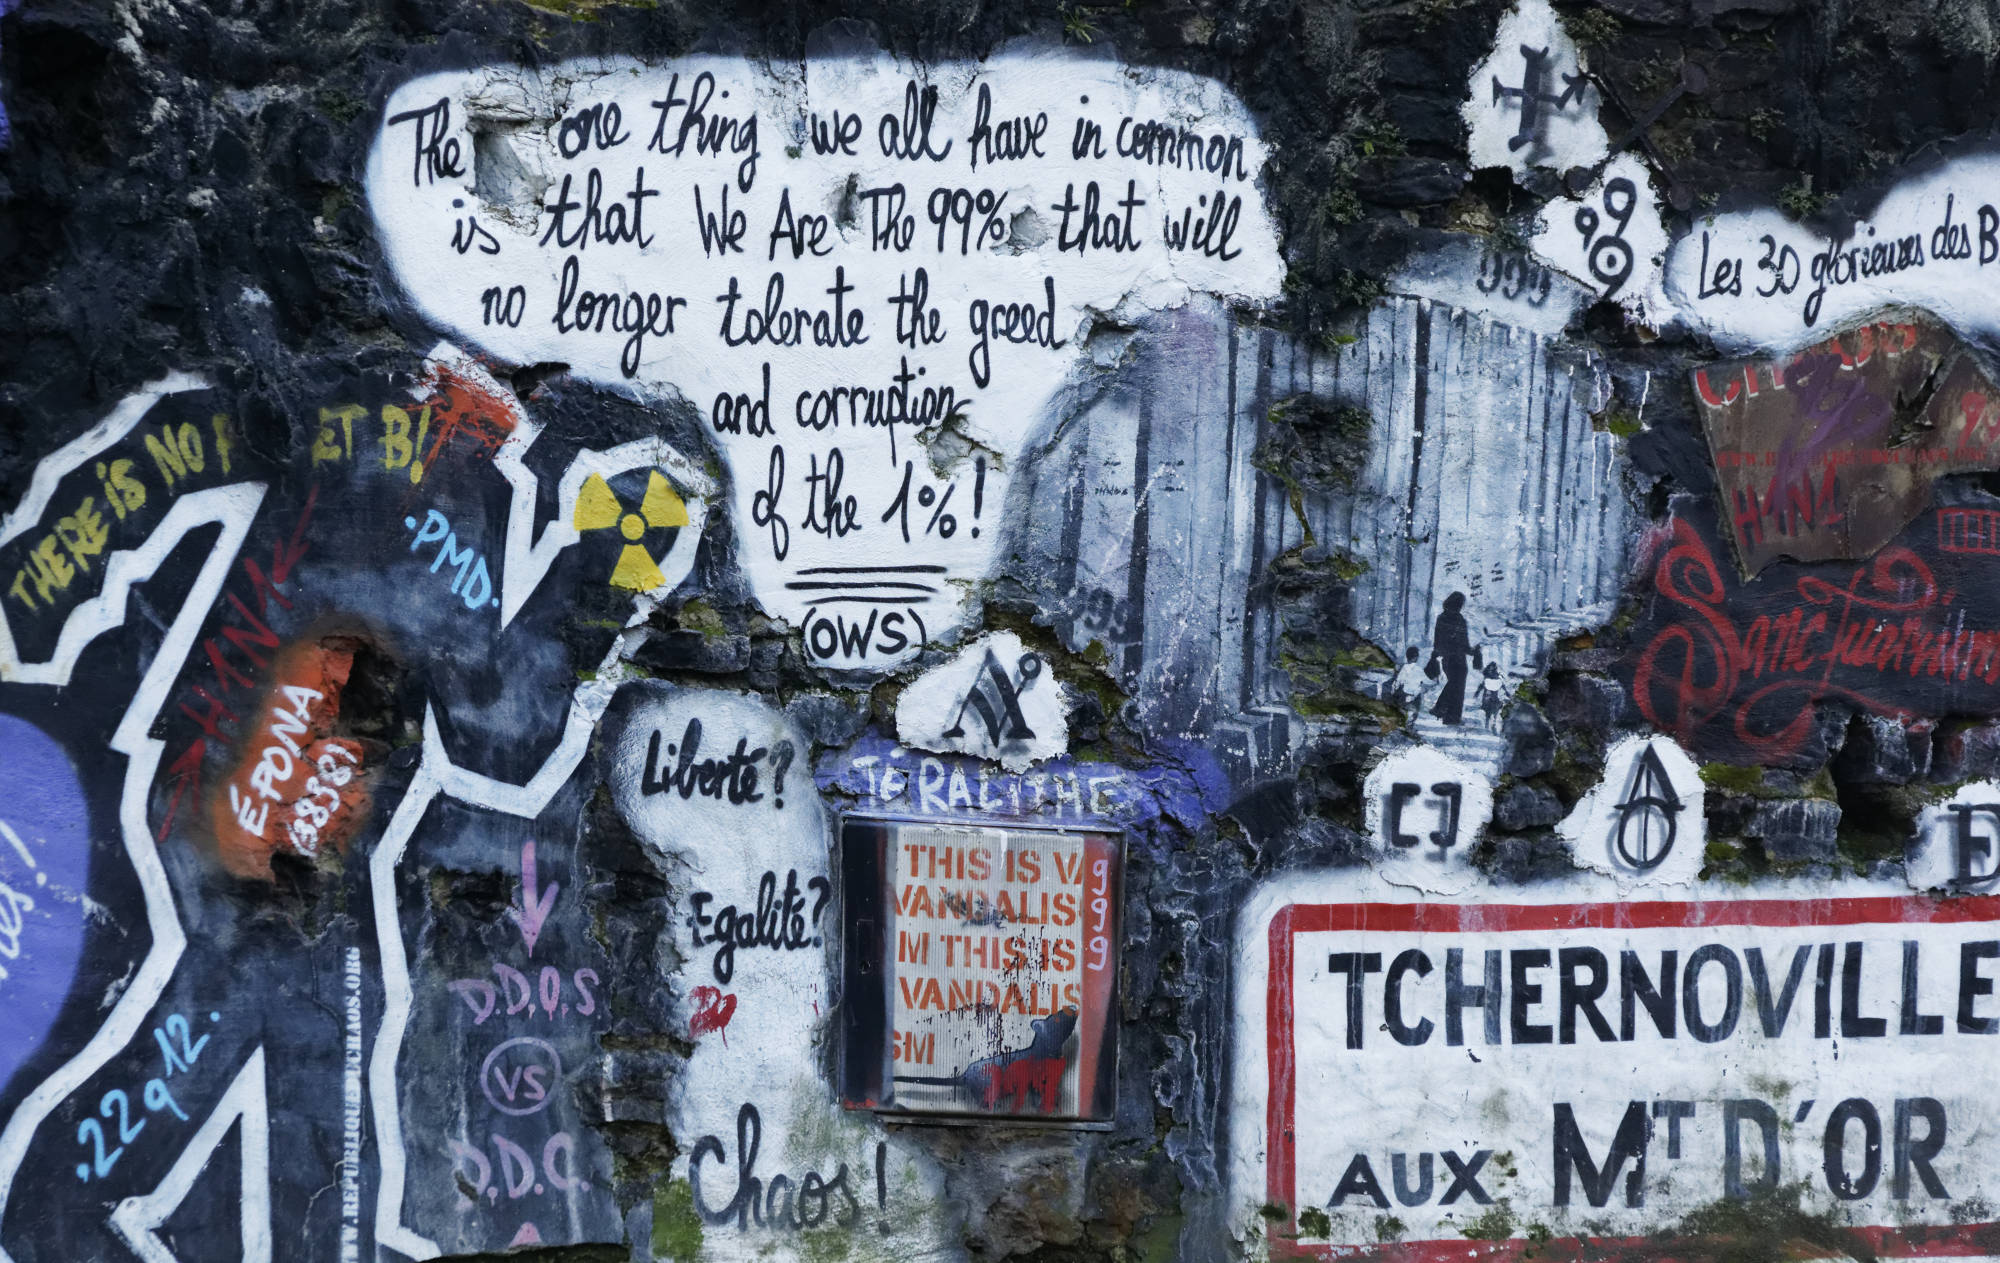 The one thing we all have in common
is that We Are The 99% that will
no longer tolerate the greed
and corruption
of the 1%!
(OWS)
999
Les 30 glorieuses des B
THERE IS NO P ET B!
.PMD.
H1N1
ÉPONA
(38381)
.22q12.
WWW.REPUBLIQUEDECHAOS.ORG
D.D.O.S
VS
D.D.C.
Liberté?
Egalité?
Chaos!
TÉRALITHE
THIS IS VA
VANDALIS
M THIS IS
VANDALIS
SM
999
H1N1
Sanctuarium
[]
E
TCHERNOVILLE
AUX MT D'OR